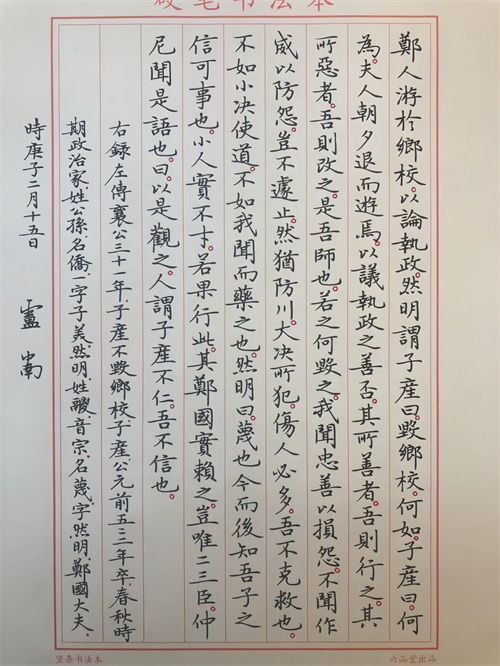 硬笔书法本
鄭人游於鄉校。以論執政。然明謂子產曰。毀鄉校。何如。子產曰。何
為。夫人朝夕退而遊焉。以議執政之善否。其所善者。吾則行之。其
所惡者。吾則改之。是吾師也。若之何毀之。我聞忠善以損怨。不聞作
威以防怨。豈不遽止。然猶防川。大决所犯。傷人必多。吾不克救也。
不如小决使道。不如我聞而藥之也。然明曰。蔑也今而後知吾子之
信可事也。小人實不才。若果行此。其鄭國實賴之。豈唯二三臣。仲
尼聞是語也。曰。以是觀之。人謂子產不仁。吾不信也。
右録左傳襄公三十一年，子產不毀鄉校，子產，公元前五二二年卒，春秋時
期政治家，姓公孫，名僑，一字子美，然明，姓鬷，音宗，名蔑，字然明，鄭國大夫，
時庚子二月十五日
竖条书法本
六品堂出品